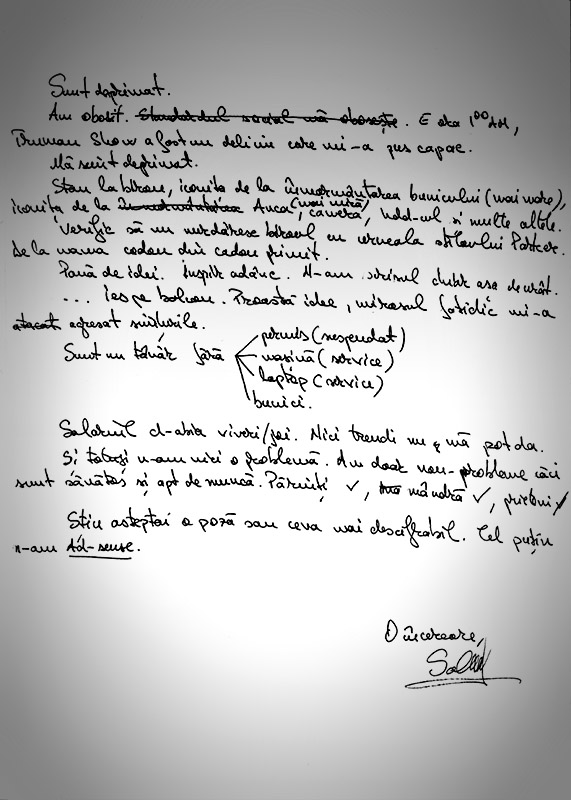 Sunt deprimat.
Am obosit. Standardul social mă obosește. E ora 1⁰⁰ AM,
Truman Show a fost un deliciu care mi-a pus capac.
Mă simt deprimat.
Stau la birou, iconița de la înmormântarea bunicului (mai vode),
iconița de la Anca (mai mică), camera, hdd-ul și multe altele.
Verific să nu murdăresc biroul cu cerneala stiloului Parker.
De la nama cadou din cadou primit.
Pană de idei. Inspir adânc. N-am scrisul chiar așa de urât.
... Ies pe balcon. Proastă idee, mirosul fatidic mi-a
atacat agresat simțurile.
Sunt un tânăr fără
permis (suspendat)
mașină (service)
laptop (service)
bunici.
Salariul d-abia vineri/joi. Nici trendi nu mă pot da.
Și totuși n-am nici o problemă. Am doar non-probleme căci
sunt sănătos și apt de muncă. Părinți ✓, mândră ✓, prieteni ✓
Știu așteptai o poză sau ceva mai descifrabil. Cel puțin
n-am Ad-sense.
O încercare,